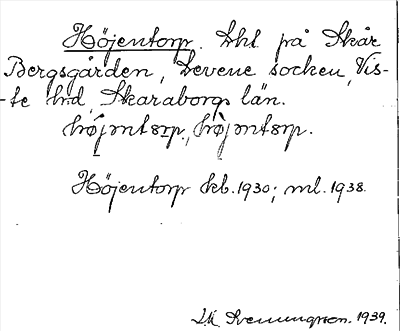 Höjentorp. Lht. på Skår
Bergsgården, Levene socken, Vis-
-te hd, Skaraborgs län.
højentɔrp., højmtɔrp.
Höjentorp kb. 1930; ml. 1938.
Svenungson. 1939.